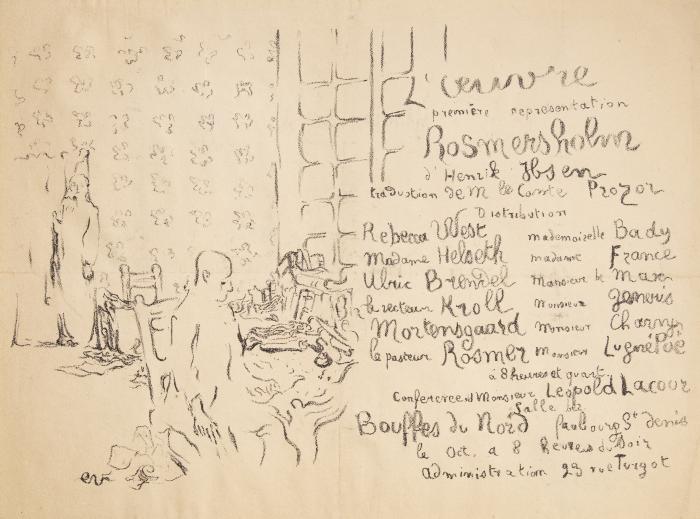 L'œuvre
première representation
Rosmersholm
d'Henrik Ibsen
traduction de M le Comte Prozor
Distribution
Rebecca West mademoiselle Bady
Madame Helseth madame France
Ulric Brendel Monsieur
le recteur Kroll Monsieur
Mortensgaard Monsieur Charny
le pasteur Rosmer Monsieur Lugné Poe
à 8 heures et quart
Conference Monsieur Leopold Lacour
Salle des
Bouffes du Nord faubourg St denis
le Oct. a 8 heures du Soir
administration 23 rue Turgot
ev